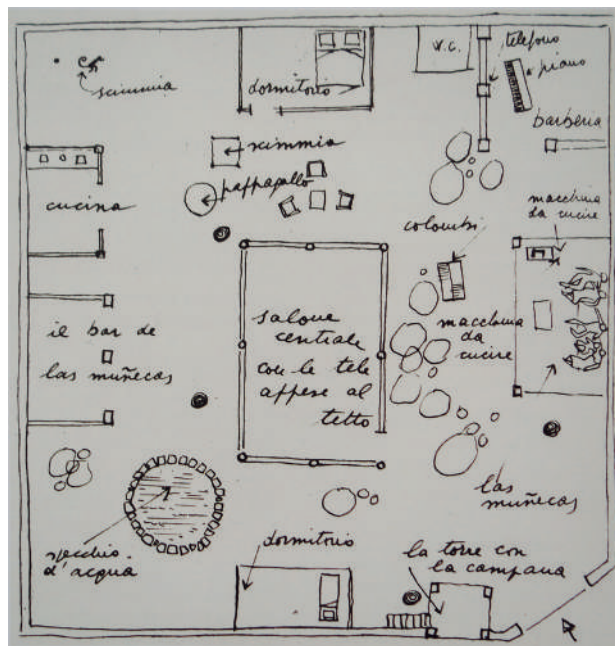 scimmia
dormitorio
W.C.
telefono
piano
barberia
cucina
scimmia
pappagallo
colombi
macchina
da cucire
il bar de
las muñecas
salone
centrale
con le tele
appese al
tetto
macchina
da
cucire
las
muñecas
specchio
d'acqua
dormitorio
la torre con
la campana